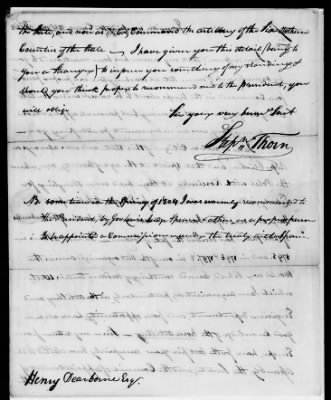 the State, and now as I Command the artillery of the Southern
Counties of the State — I have given you this detail (being to
you a Stranger) to inform you something of my Standing &
should you think proper to recommend me to the president, you
will oblige
Sir your very humbl Servt
Stepn Thorn
NB. sometime in the Spring of 1804 I was warmly recommended to
the President, by Gov Lewis, Judge Spencer & others, as a proper person
to be appointed a Commissioner under the treaty with Spain
Henry Dearborne Esqr.